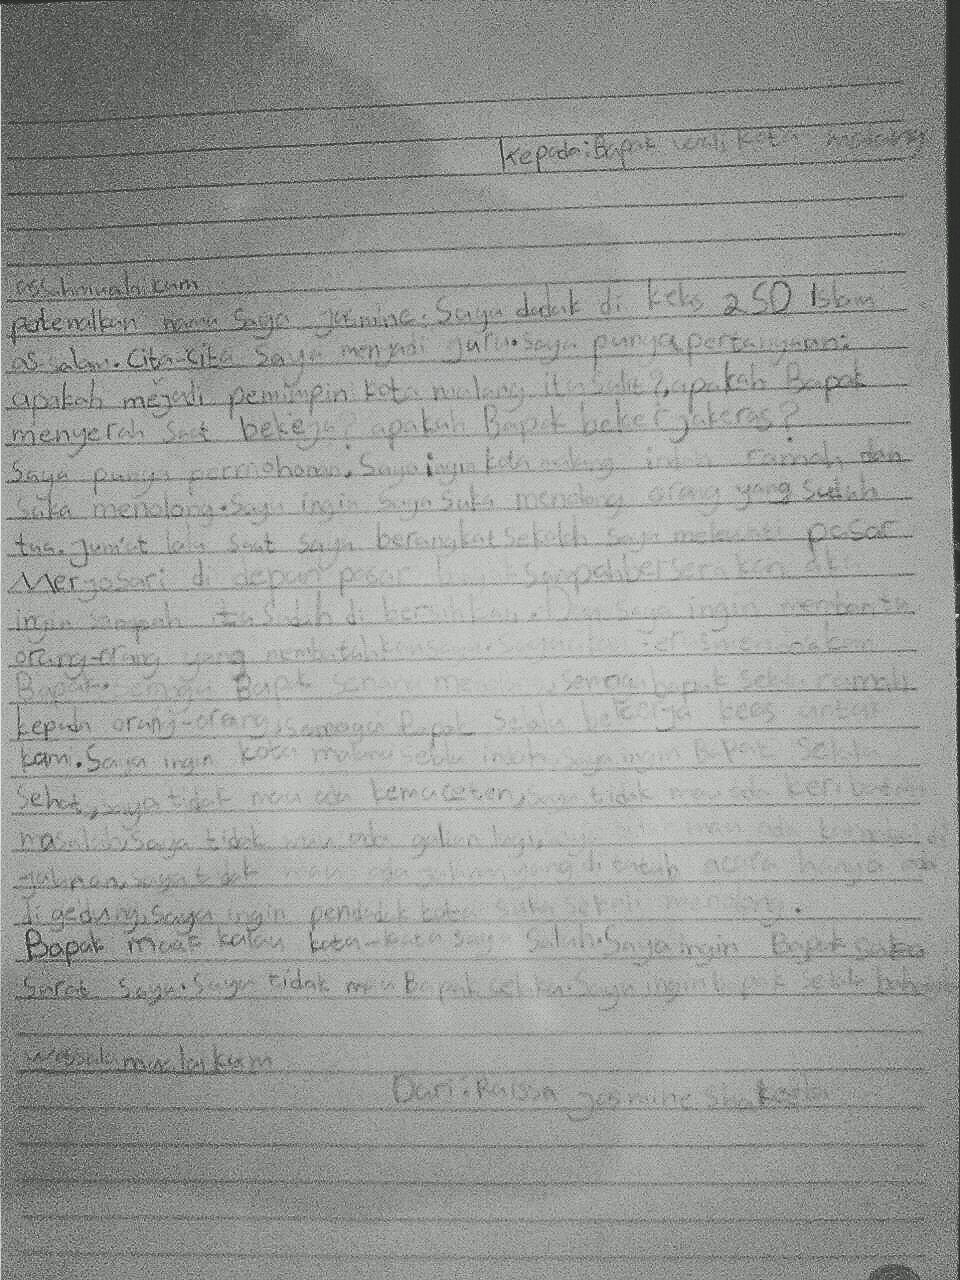 Kepada: Bapak wali kota malang
assalmualaikum
perkenalkan nama Saya Jasmine. Saya duduk di kelas 2 SD Islam
as salam. Cita-cita Saya menjadi guru. Saya punya pertanyaan:
apakah mejadi pemimpin kota malang itu Sulit?, apakah Bapak
menyerah Saat bekeja? apakah Bapak bekerja keras?
Saya punya permohonan. Saya ingin kota malang indah ramah dan
Suka menolong. Saya ingin Saya Suka menolong orang yang Sudah
tua. Jum'at lalu Saat Saya berangkat Sekolah Saya melewati pasar
Merjosari di depan pasar Sampah berserakan
ingin Sampah itu Sudah di bersihkan. Dan Saya ingin membantu
orang-orang yang membutuhkan Saya.
Bapak. Semoga Bapak Senang Semoga bapak Selalu ramah
kepada orang-orang, Semoga Bapak Selalu bekerja keras untuk
kami. Saya ingin kota malang Selalu indah, Saya ingin Bapak Selalu
Sehat, Saya tidak mau ada kemaceten, Saya tidak mau ada
masalah, Saya tidak mau ada galian lagi,
jalanan, Saya tidak mau ada jalan yang di tutup acara hanya
di gedung, Saya ingin penduduk kota Suka menolong.
Bapak maaf kalau kata-kata Saya Salah. Saya ingin Bapak
Surat Saya. Saya tidak mau bapak celaka. Saya ingin bapak Selalu
wassalamualaikum
Dari: Raissa Jasmine